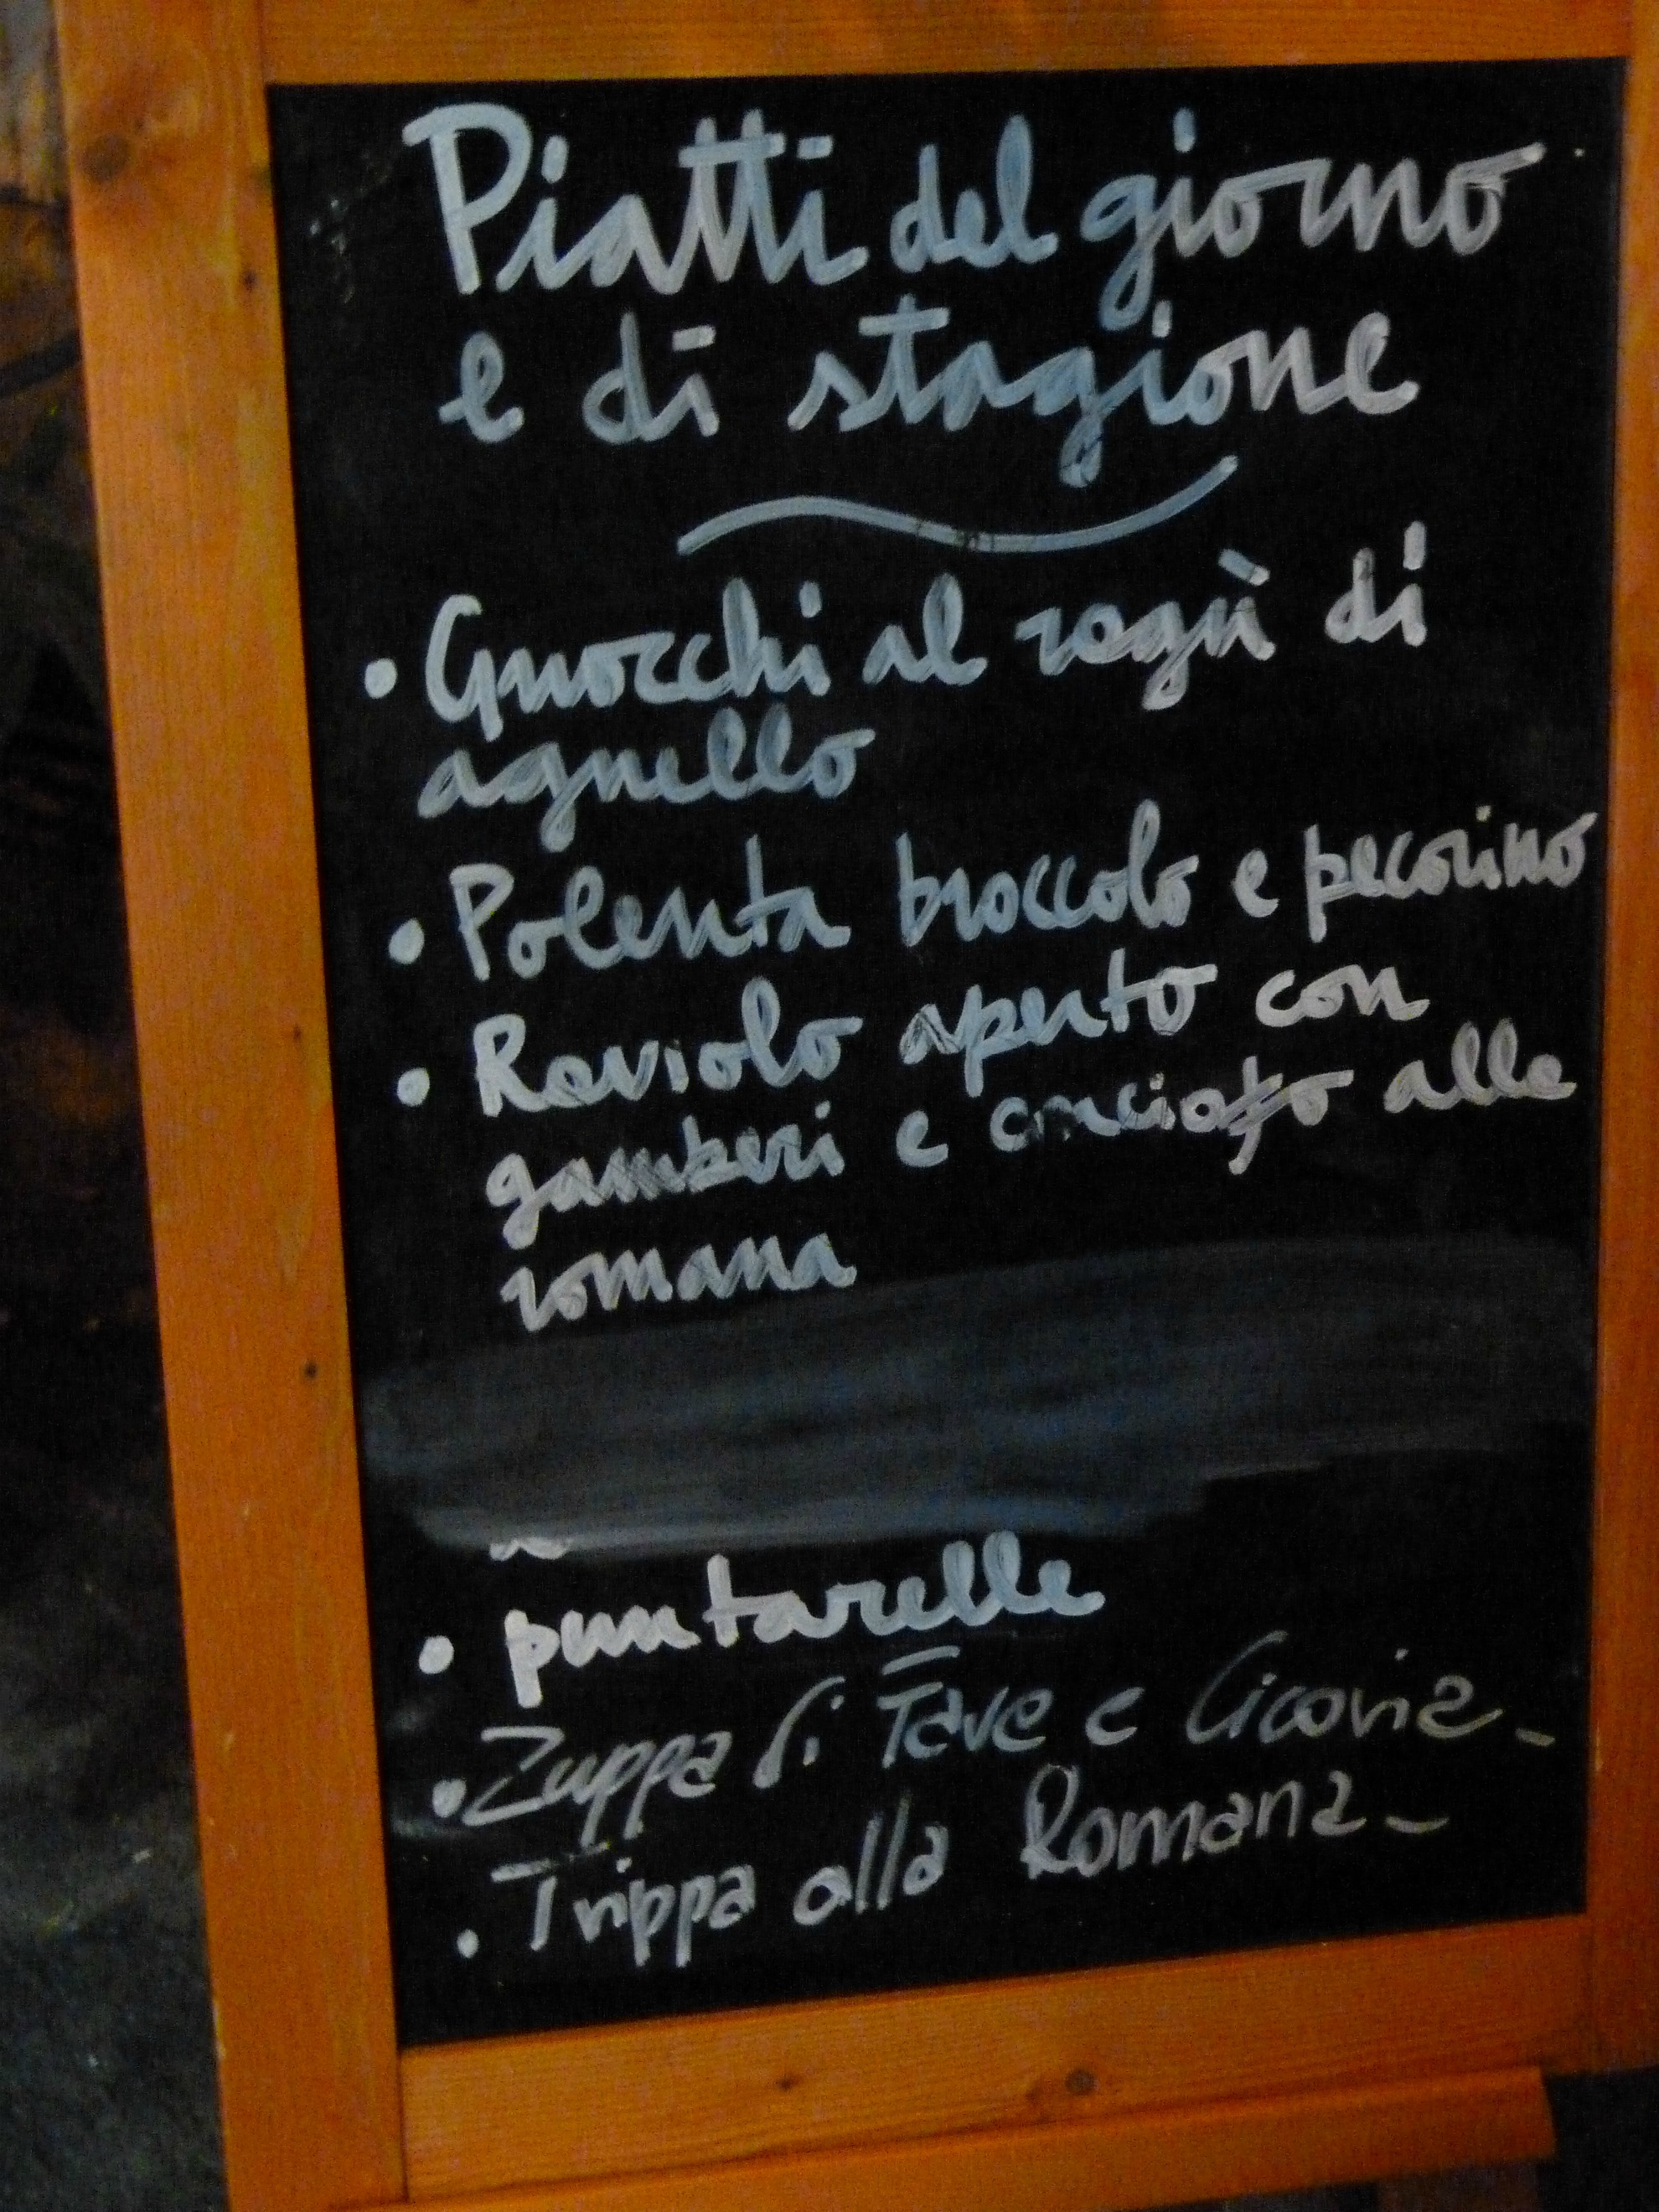 Piatti del giorno
e di stagione
• Gnocchi al ragù di
agnello
• Polenta broccolo e pecorino
• Raviolo aperto con
gamberi e carciofo alla
romana
• puntarelle
• Zuppa di Fave e Cicoria -
• Trippa alla Romana -